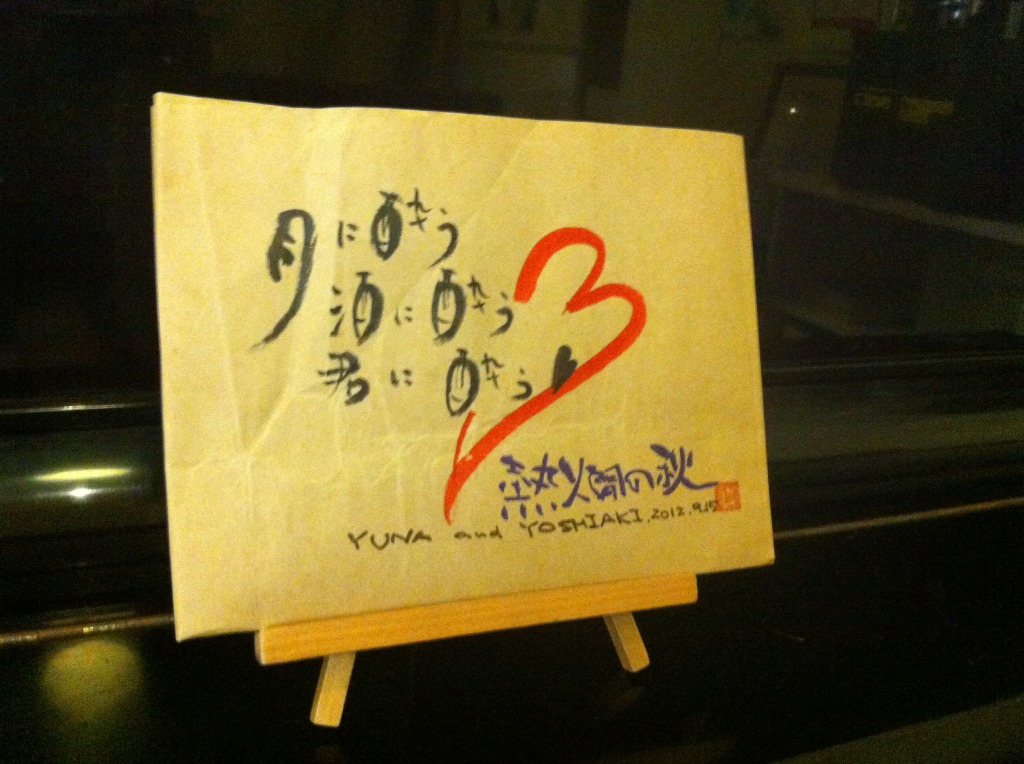 月に酔う
酒に酔う
君に酔う
熱燗の秋
YUNA and YOSHIAKI, 2012.9.15